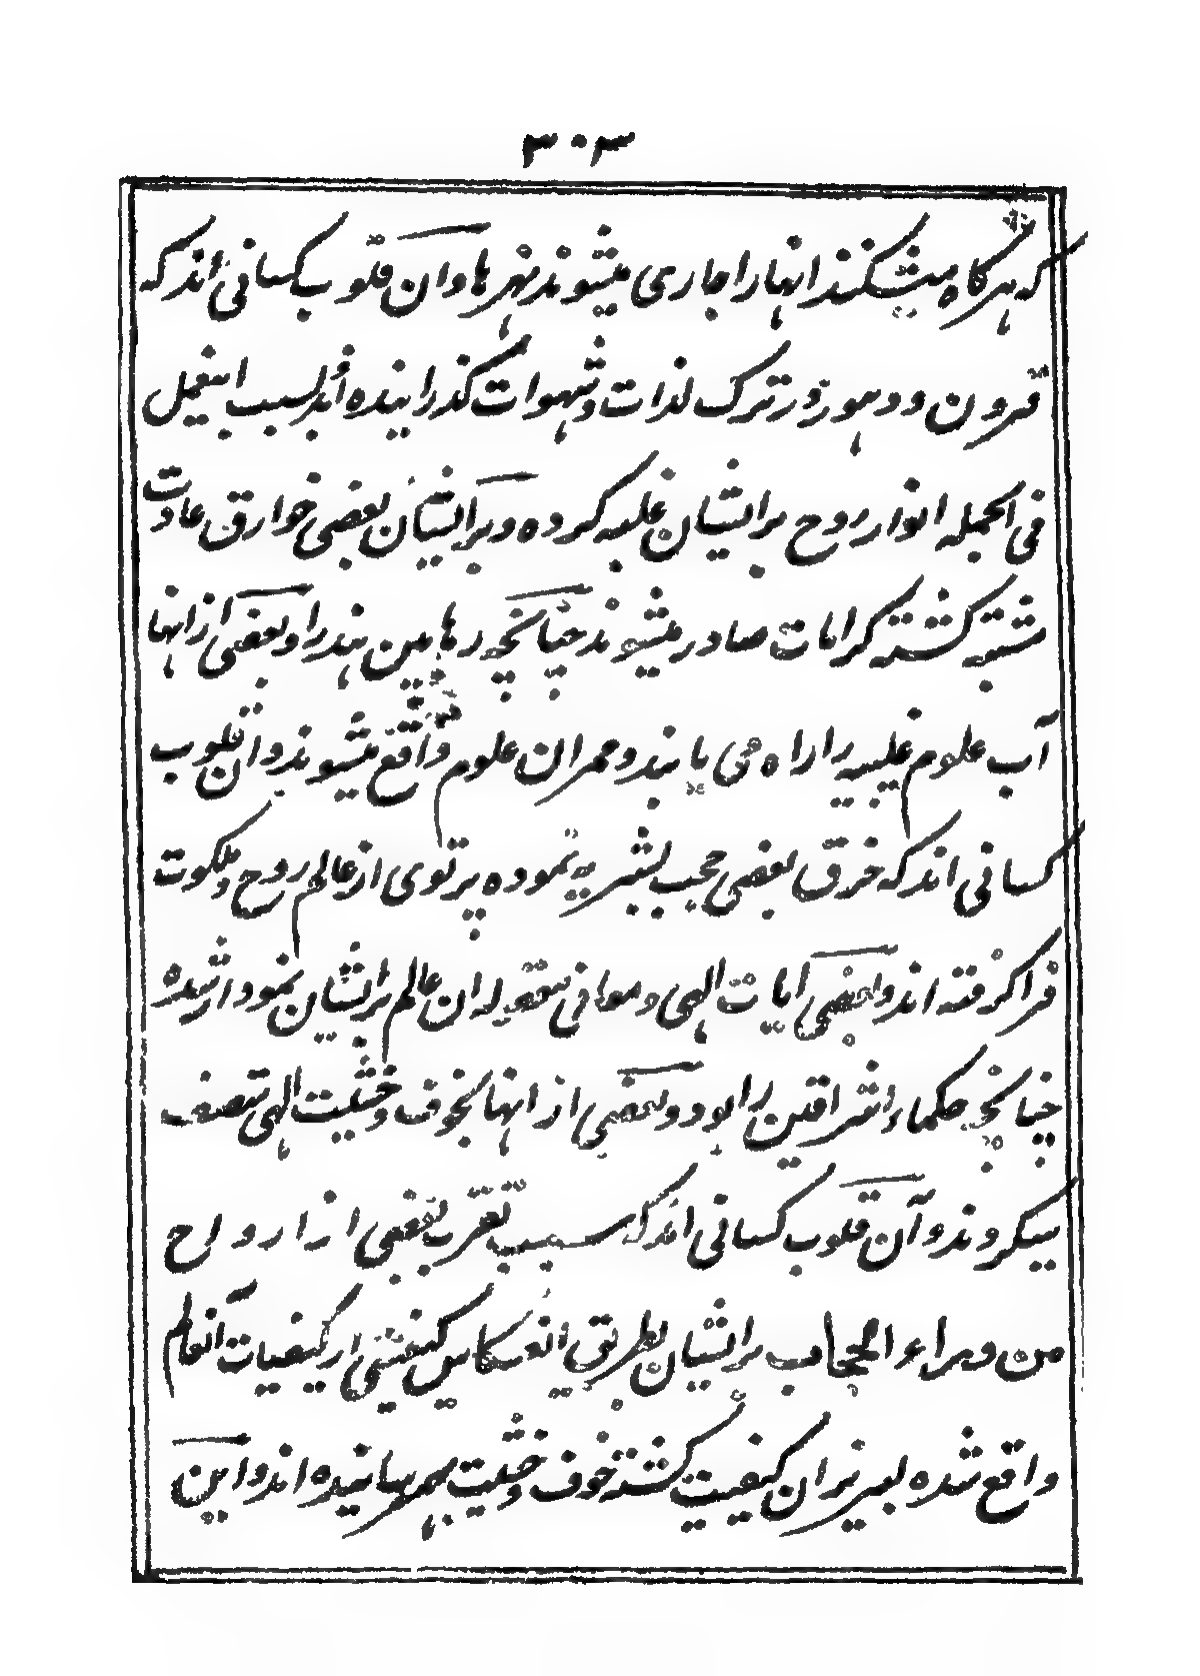 ۳۰۳
که هرگاه میشکند انها را جاری میشوند نهرها وان قلوب کسانی اند که
قرون و دهور در ترک لذات و شهوات گذرانیده اند بسبب اینعمل
فی الجمله انوار روح بر ایشان غلبه کرده و بر ایشان بعضی خوارق عادات
مشتبه گشته کرامات صادر میشوند چنانچه رهابین هند را و بعضی از انها
آب علوم غلیبه را راه می یابند و عمران علوم واقع میشوند و ان قلوب
کسانی اند که خرق بعضی حجب بشریه نموده پرتوی از عالم روح و ملکوت
فرا گرفته اند و بعضی ایات الهی و موافی منقوله ان عالم بر ایشان نمودار شده
چنانچه حکماء اشراقین را بود و بعضی از انها بخوف و خشیت الهی متصف
میکروند و آن قلوب کسانی اند که بسبب تقرب بعضی از ارواح
من وراء الحجاب بر ایشان بطریق انعکاس کیفیتی از کیفیات آنعالم
واقع شده لبریز ان کیفیت گشته خوف و خشیت بهم رسانیده اند و این